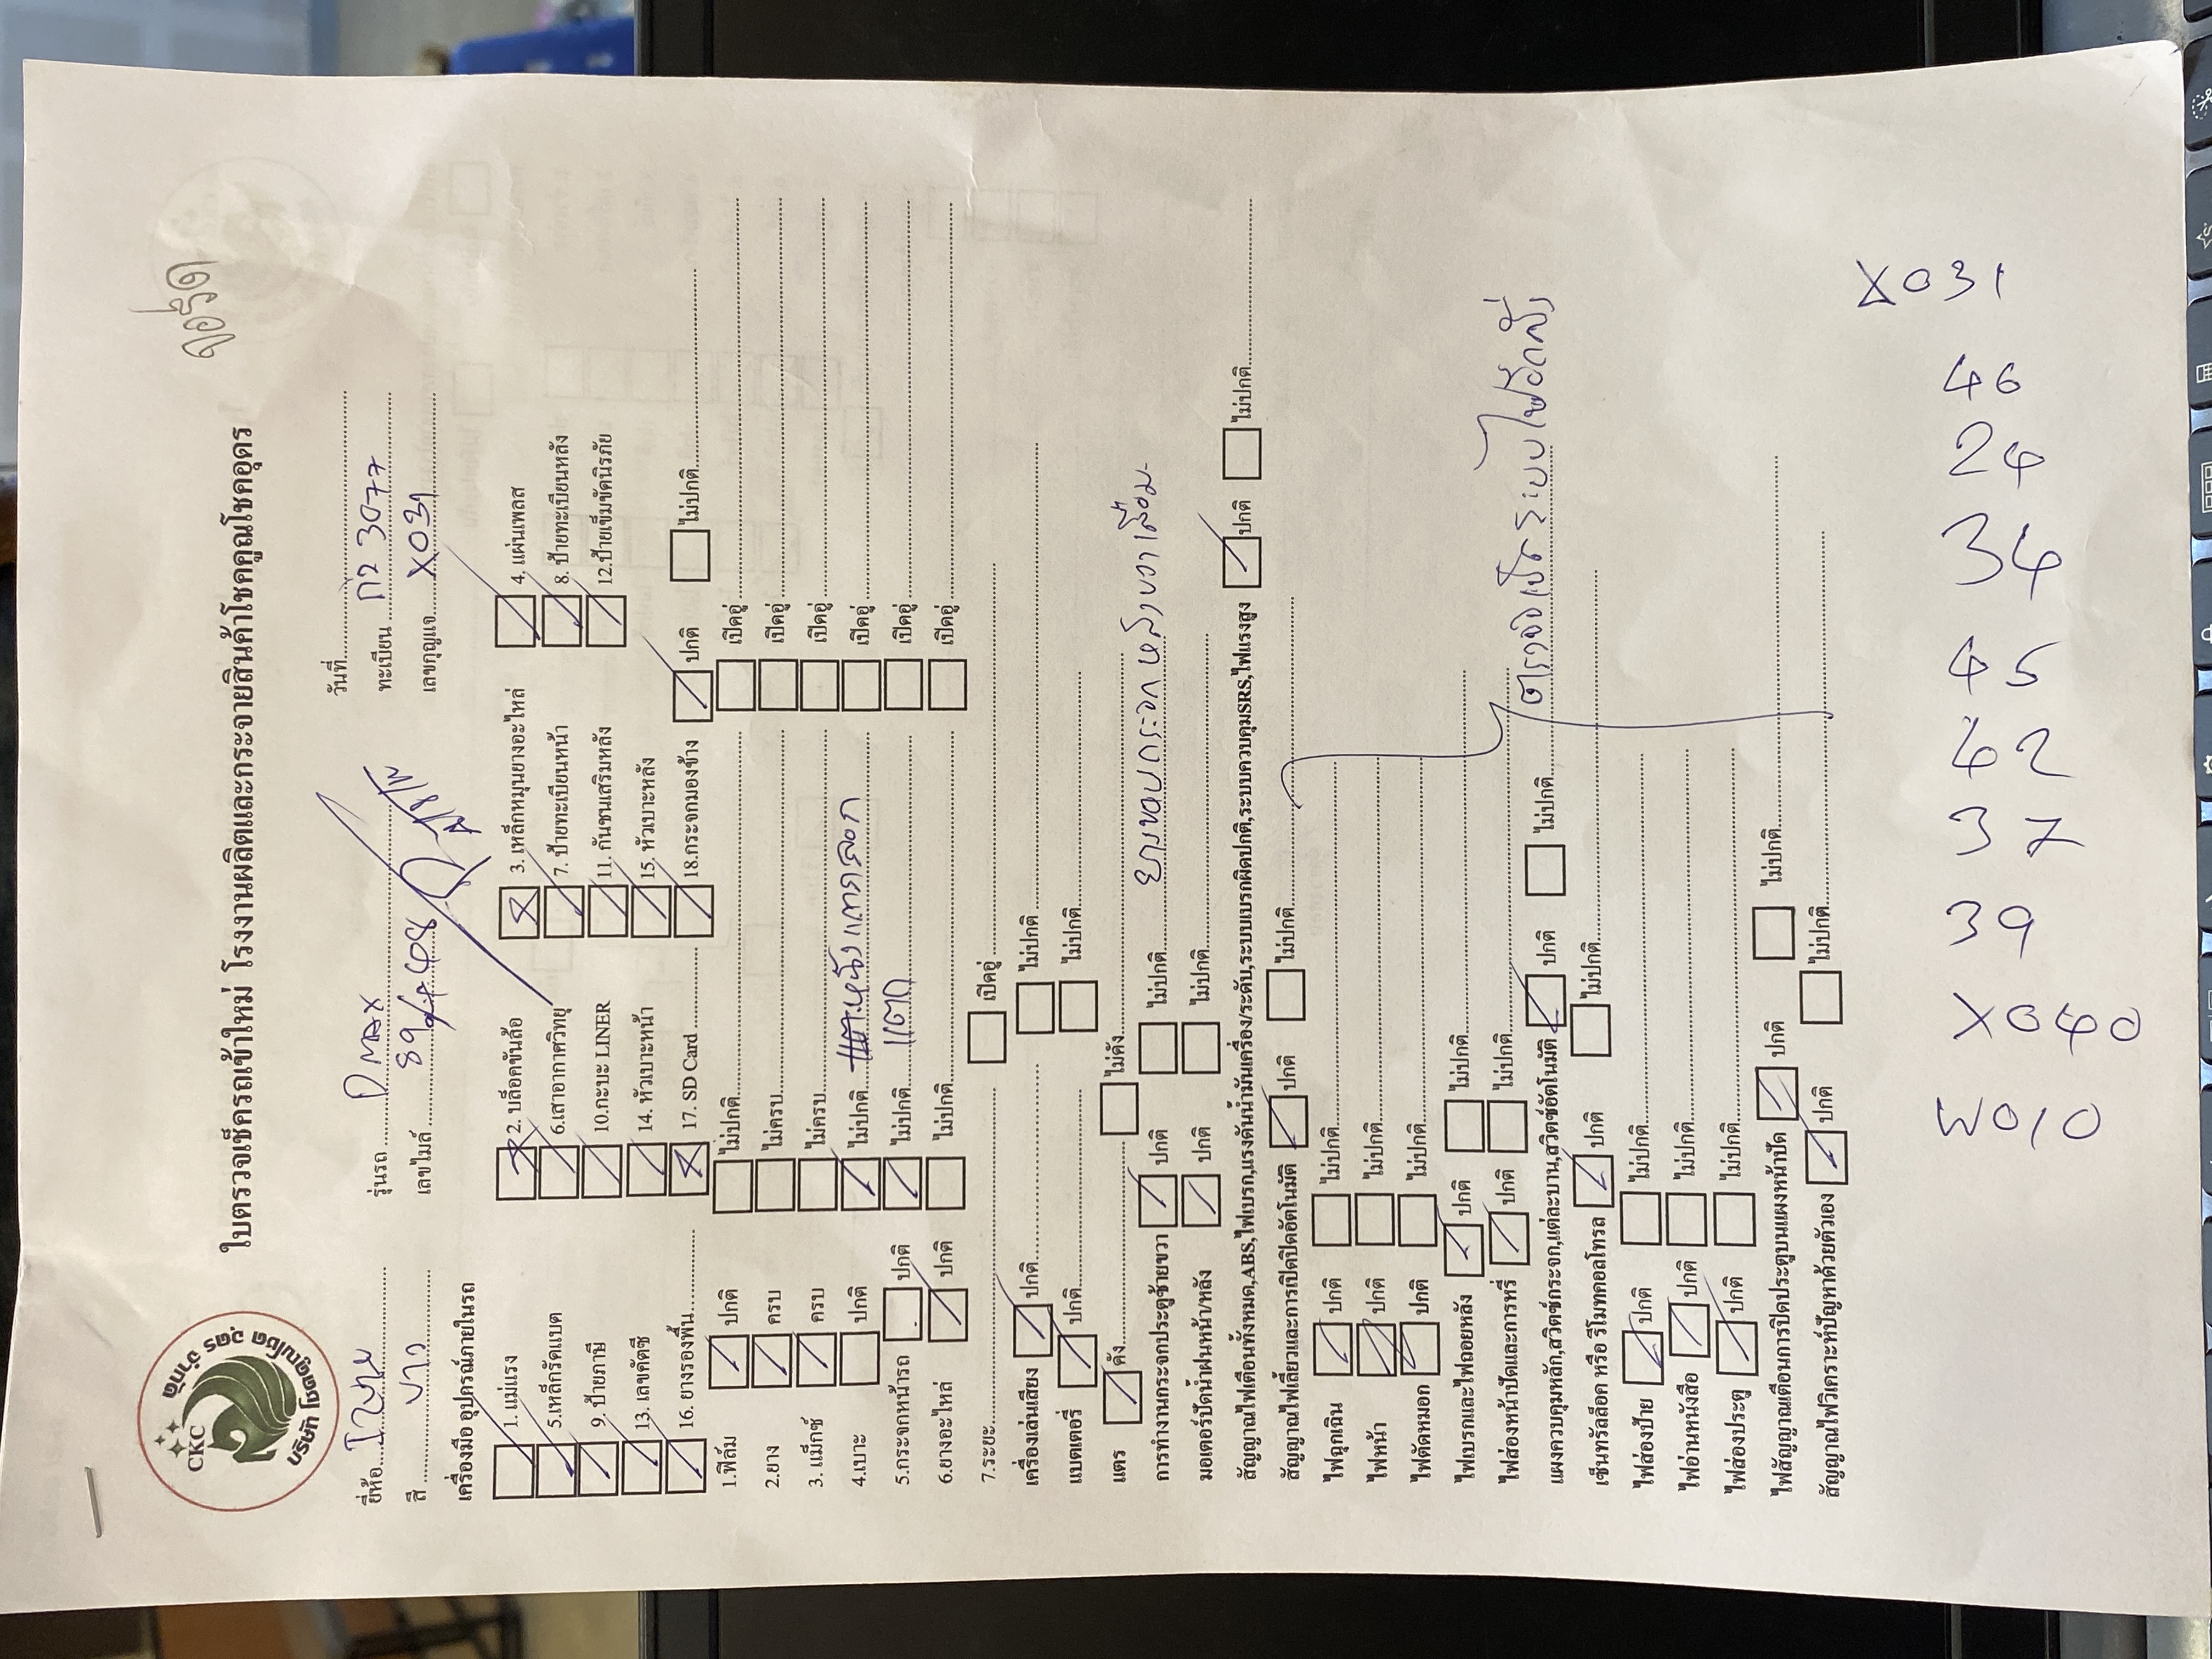 จอร์จ
CKC
บริษัท โชคคูณโชค อุดร จำกัด
ใบตรวจเช็ครถเข้าใหม่ โรงงานผลิตและกระจายสินค้าโชคคูณโชคอุดร
ยี่ห้อ รุ่นรถ DMAX วันที่
สี ขาว เลขไมล์ ทะเบียน 3077
เลขกุญแจ X031
เครื่องมือ อุปกรณ์ภายในรถ
1. แม่แรง 2. บล็อคขันล้อ 3. เหล็กหมุนยางอะไหล่ 4. แผ่นเพลส
5.เหล็กรัดแบต 6.เสาอากาศวิทยุ 7. ป้ายทะเบียนหน้า 8. ป้ายทะเบียนหลัง
9. ป้ายภาษี 10.กะบะ LINER 11. กันชนเสริมหลัง 12.ป้ายเข็มขัดนิรภัย
13. เลขคัตซี 14. หัวเบาะหน้า 15. หัวเบาะหลัง
16. ยางรองพื้น 17. SD Card 18.กระจกมองข้าง ปกติ ไม่ปกติ
1.ฟิล์ม ปกติ ไม่ปกติ เปิดอู่
2.ยาง ครบ ไม่ครบ เปิดอู่
3. แม็กซ์ ครบ ไม่ครบ เปิดอู่
4.เบาะ ปกติ ไม่ปกติ เปิดอู่
5.กระจกหน้ารถ ปกติ ไม่ปกติ แตก เปิดอู่
6.ยางอะไหล่ ปกติ ไม่ปกติ เปิดอู่
7.ระยะ เปิดอู่
เครื่องเล่นเสียง ปกติ ไม่ปกติ
แบตเตอรี่ ปกติ ไม่ปกติ
แตร ดัง ไม่ดัง
การทำงานกระจกประตูซ้ายขวา ปกติ ไม่ปกติ ยางขอบกระจก หลังขวาเสื่อม
มอเตอร์ปัดน้ำฝนหน้า/หลัง ปกติ ไม่ปกติ
สัญญาณไฟเตือนทั้งหมด,ABS,ไฟเบรก,แรงดันน้ำมันเครื่อง/ระดับ,ระบบเบรกผิดปกติ,ระบบควบคุมSRS,ไฟแรงสูง ปกติ ไม่ปกติ
สัญญาณไฟเลี้ยวและการเปิดปิดอัตโนมัติ ปกติ ไม่ปกติ
ไฟฉุกเฉิน ปกติ ไม่ปกติ
ไฟหน้า ปกติ ไม่ปกติ
ไฟตัดหมอก ปกติ ไม่ปกติ
ไฟเบรกและไฟถอยหลัง ปกติ ไม่ปกติ
ไฟส่องหน้าปัดและการหรี่ ปกติ ไม่ปกติ
แผงควบคุมหลัก,สวิตซ์กระจก,แต่ละบาน,สวิตซ์อัตโนมัติ ปกติ ไม่ปกติ
เซ็นทรัลล็อค หรือ รีโมทคอลโทรล ปกติ ไม่ปกติ
ไฟส่องป้าย ปกติ ไม่ปกติ
ไฟอ่านหนังสือ ปกติ ไม่ปกติ
ไฟส่องประตู ปกติ ไม่ปกติ
ไฟสัญญาณเตือนการปิดประตูบนแผงหน้าปัด ปกติ ไม่ปกติ
สัญญาณไฟวิเคราะห์ปัญหาด้วยตัวเอง ปกติ ไม่ปกติ
W010 X040 39 37 42 45 34 24 46 X031